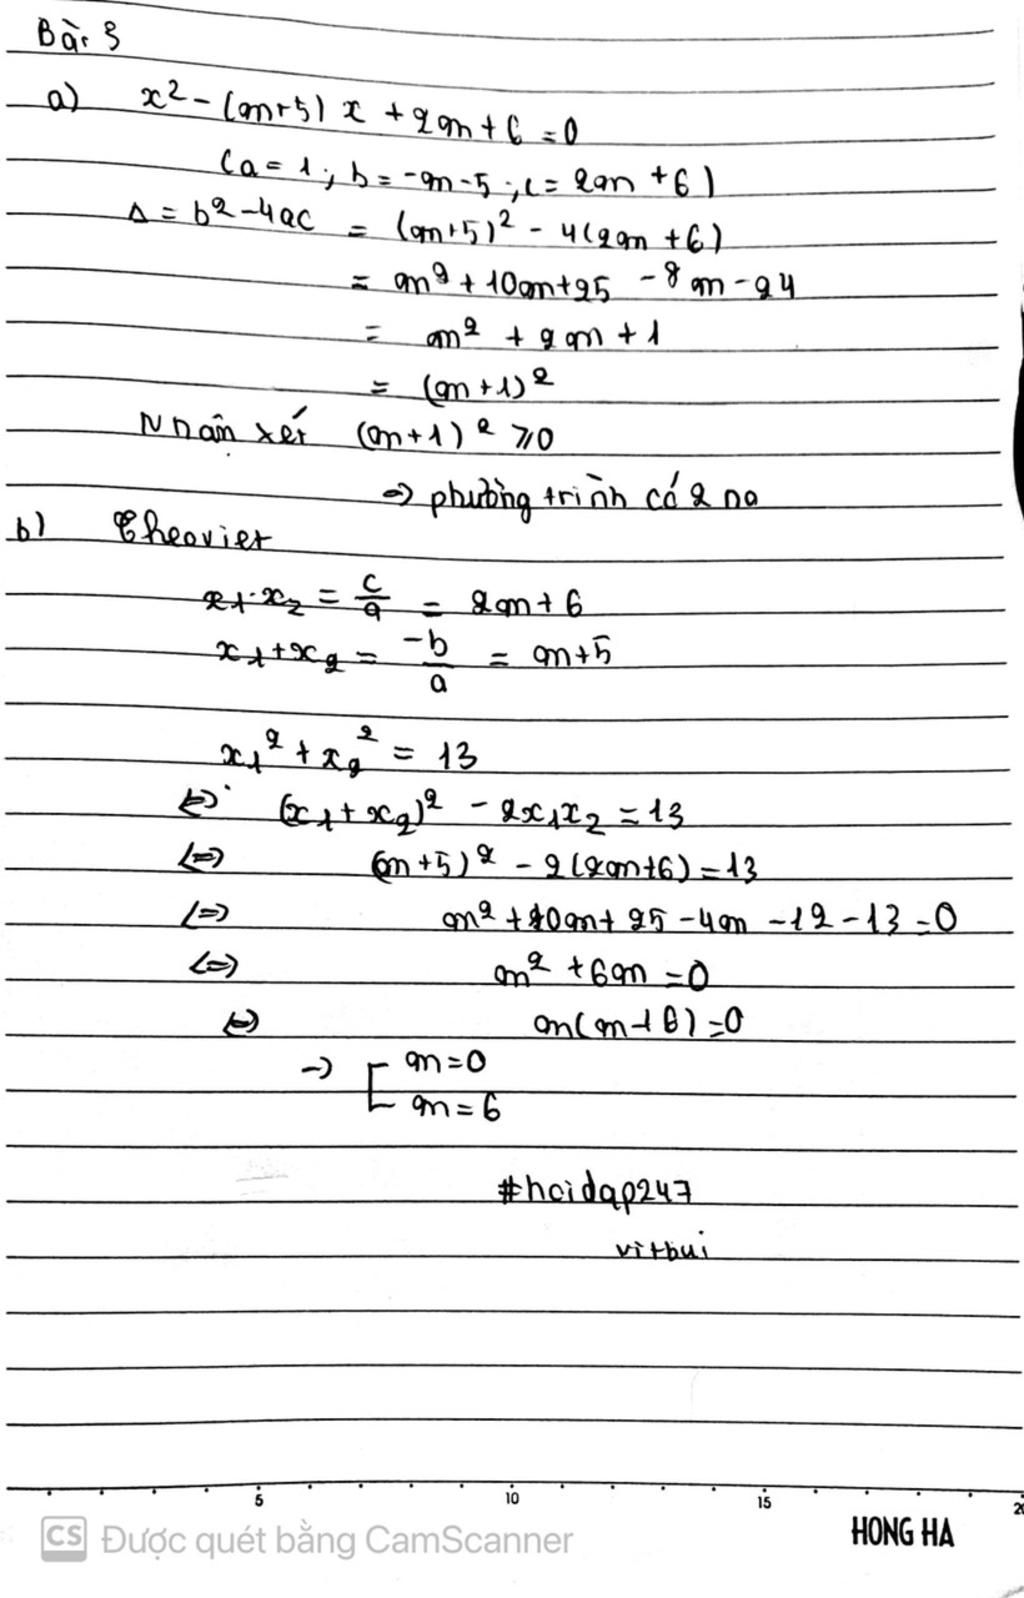 Bài 3
a) x² - (m+5) x + 2m + 6 = 0
(a = 1 ; b = -m - 5 ; c = 2m + 6)
Δ = b² - 4ac = (m+5)² - 4(2m + 6)
= m² + 10m + 25 - 8m - 24
= m² + 2m + 1
= (m + 1)²
Nhận xét (m + 1)² ≥ 0
=> phường trình có 2 no
b) Theo viet
x₁ . x₂ = c/a = 2m + 6
x₁ + x₂ = -b/a = m + 5
x₁² + x₂² = 13
<=> (x₁ + x₂)² - 2x₁x₂ = 13
<=> (m + 5)² - 2(2m + 6) = 13
<=> m² + 10m + 25 - 4m - 12 - 13 = 0
<=> m² + 6m = 0
<=> m(m + 6) = 0
-> [ m = 0
m = 6
#hoidap247
vitbui
5 10 15 20
CS Được quét bằng CamScanner
HONG HA